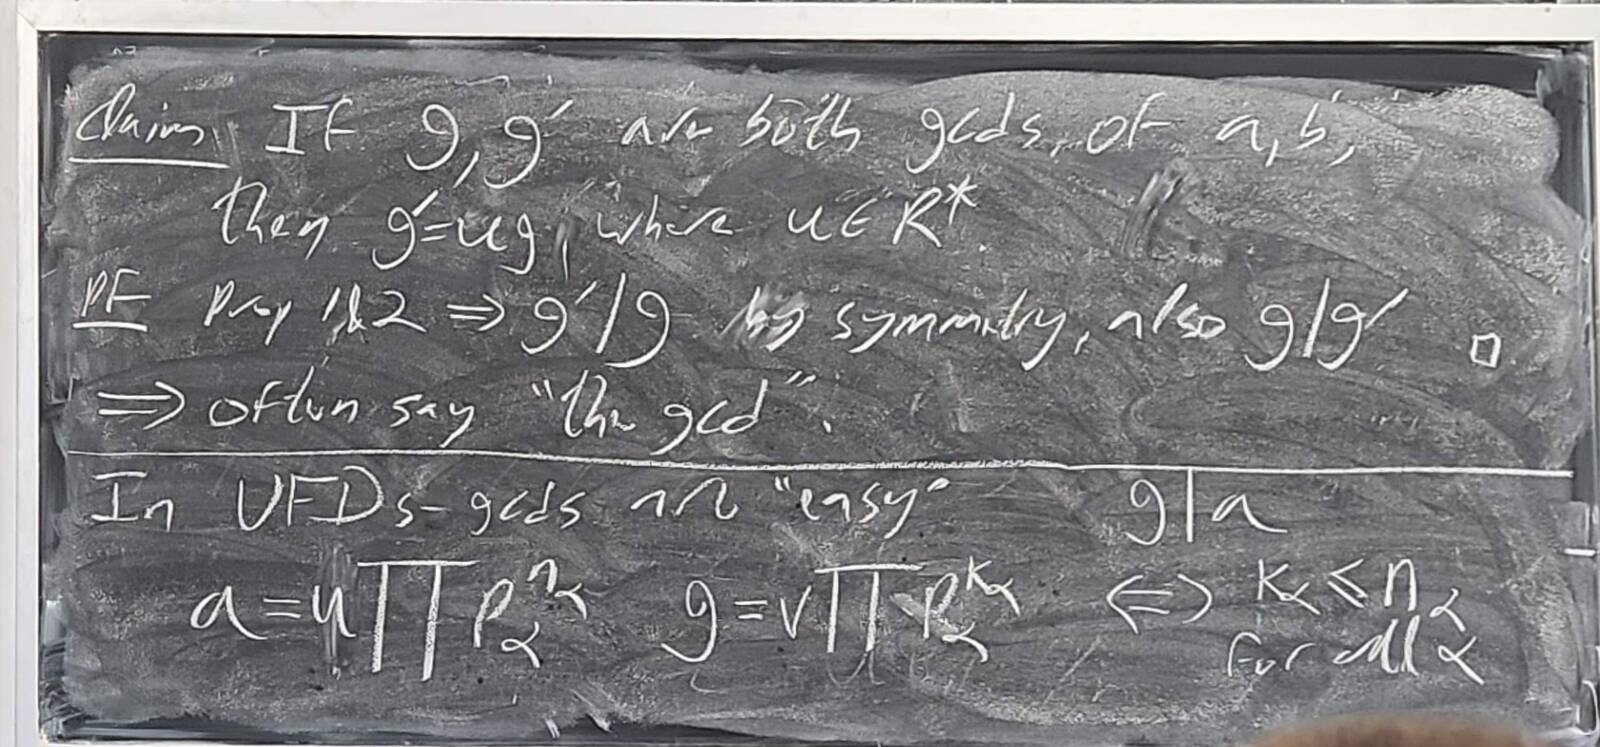 Claim If g, g′ are both gcds of a, b,
then g′=ug, where u∈R*.
PF Prop 1&2 ⇒ g′|g by symmetry, also g|g′ □
⇒ often say "the gcd".
In UFDs - gcds are "easy" g|a
a=u∏p_α^{n_α} g=v∏p_α^{k_α} ⇔ k_α ≤ n_α
for all α